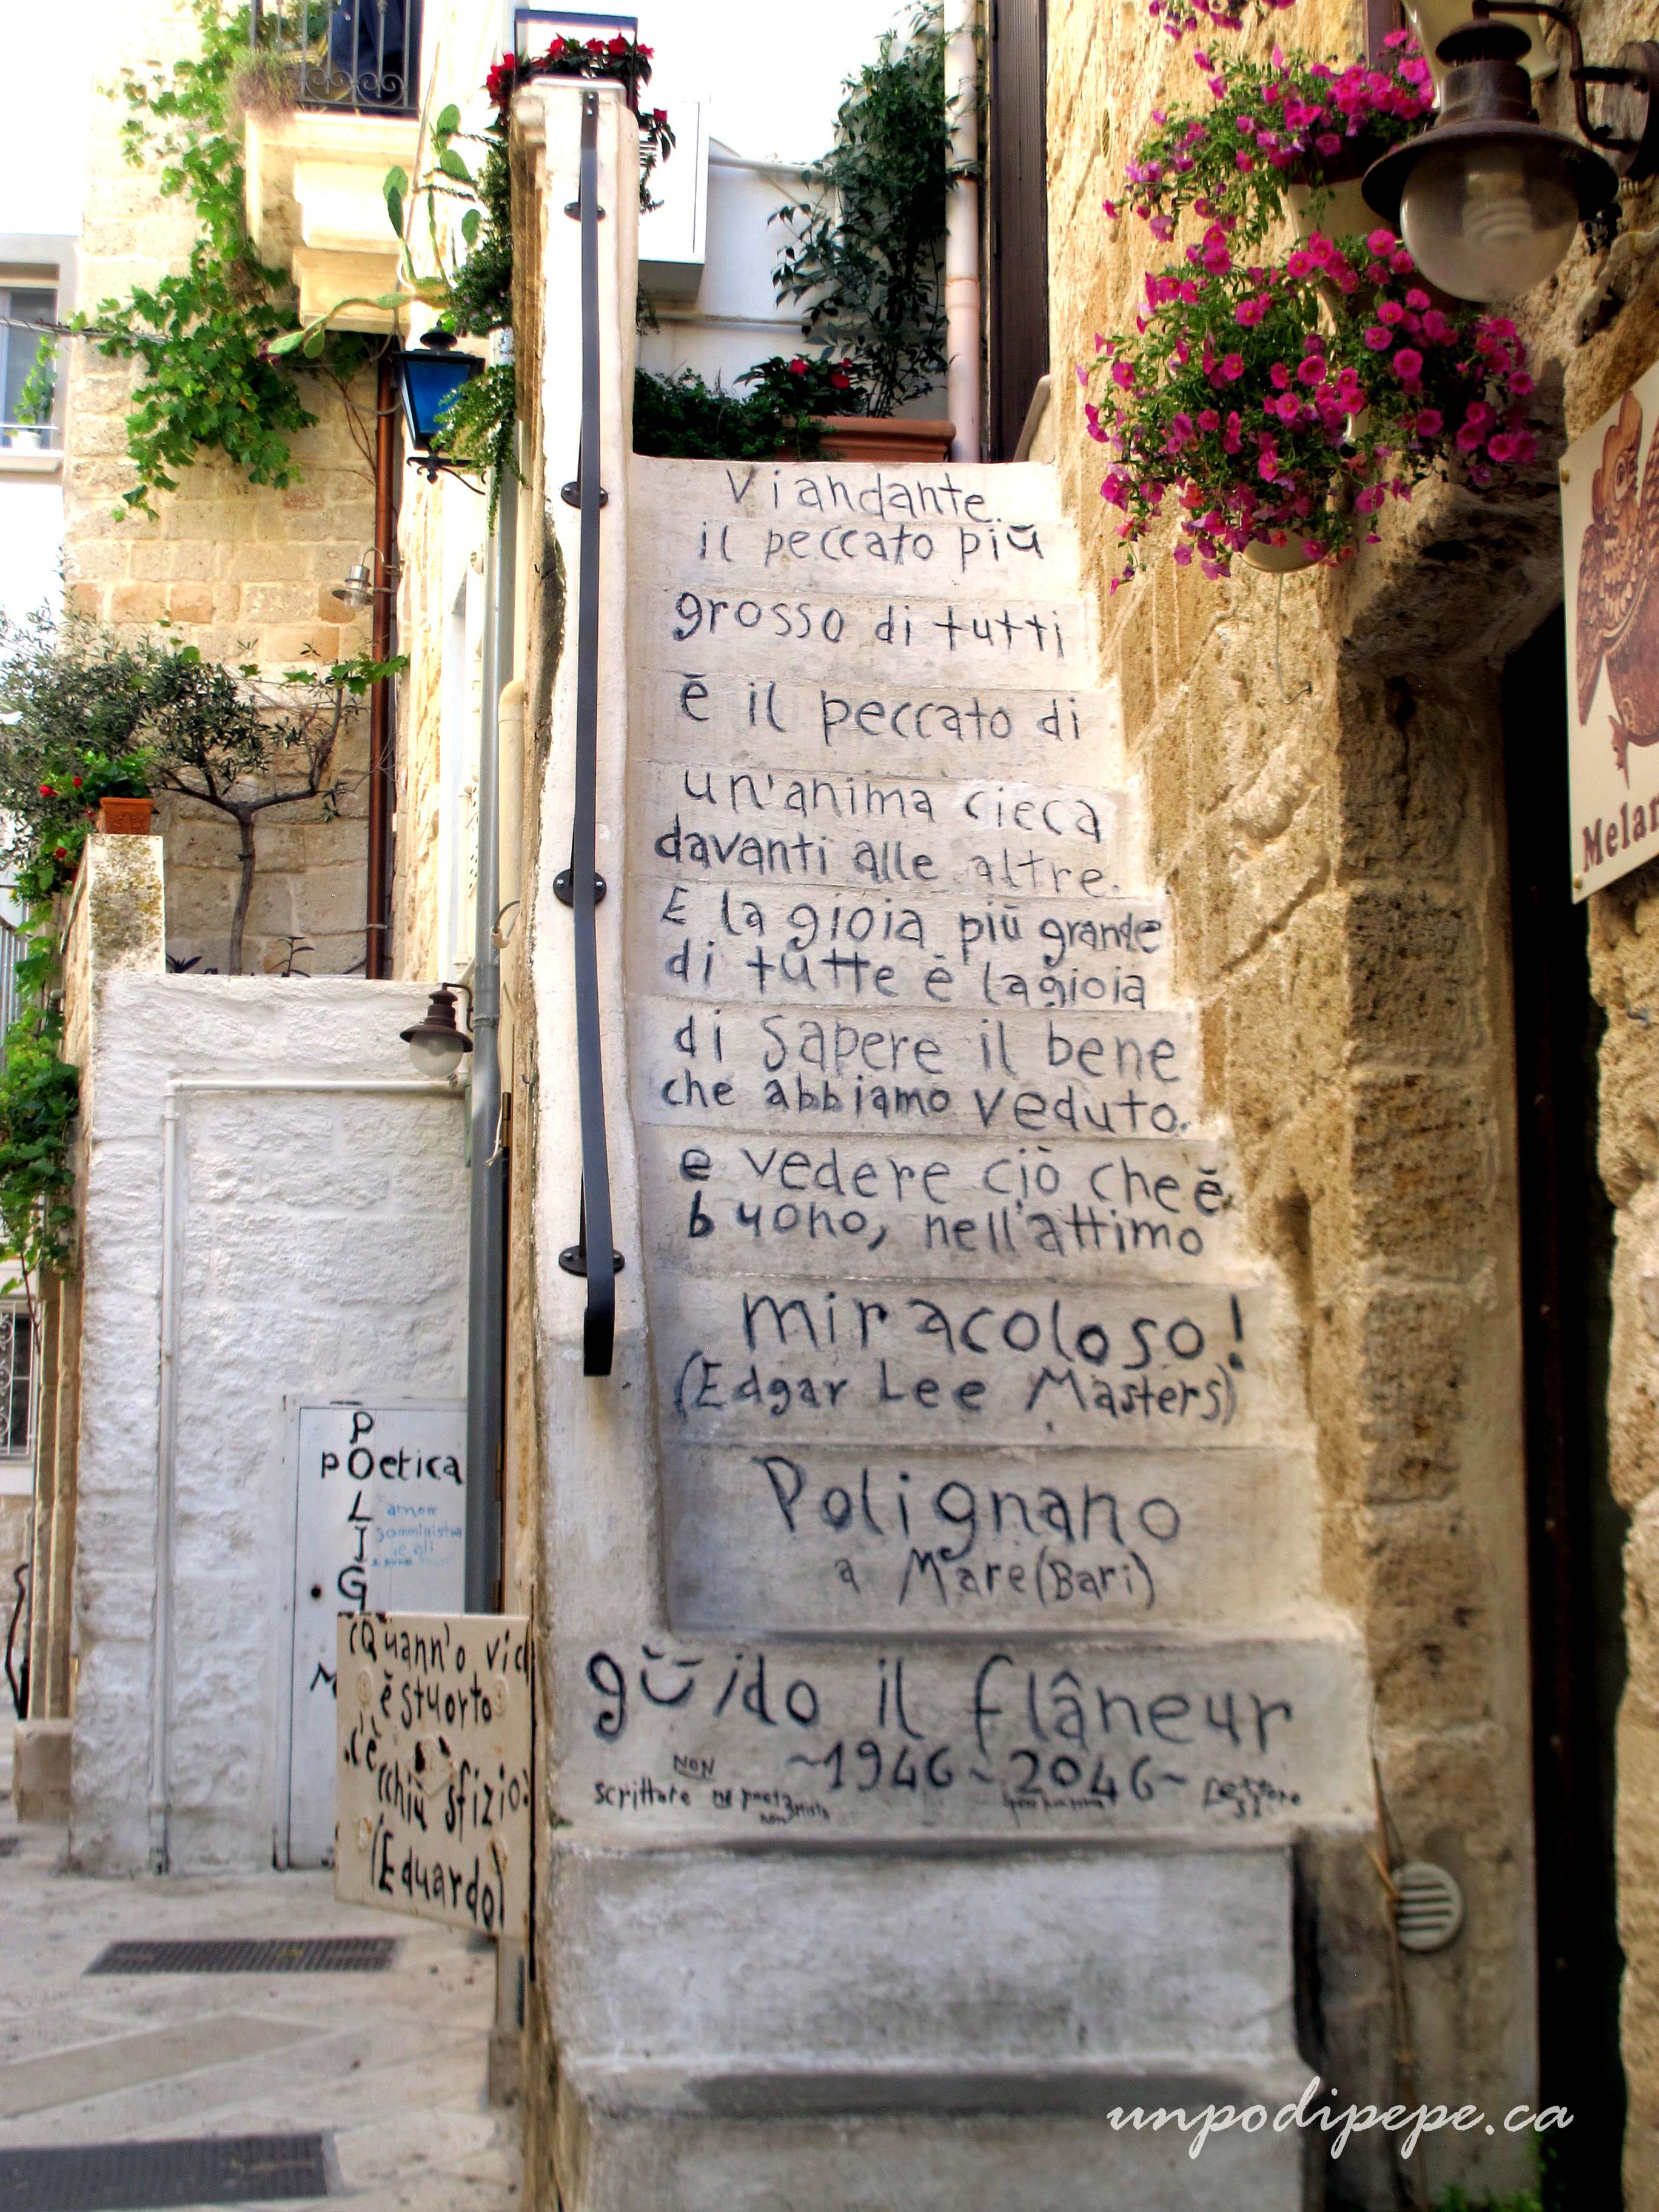 Viandante.
il peccato più
grosso di tutti
è il peccato di
un'anima cieca
davanti alle altre.
E la gioia più grande
di tutte è la gioia
di sapere il bene
che abbiamo veduto.
e vedere ciò che è
buono, nell'attimo
miracoloso!
(Edgar Lee Masters)
Polignano
a Mare (Bari)
güido il flâneur
~1946~2046~
NON
scrittore nè poeta
non
Lettore
SI
P
pOetica
L
I
G
amore
somministra
M
(Quann'o vic
è stuorto
c'è
cchiù sfizio)
(Eduardo)
Melar
unpodipepe.ca